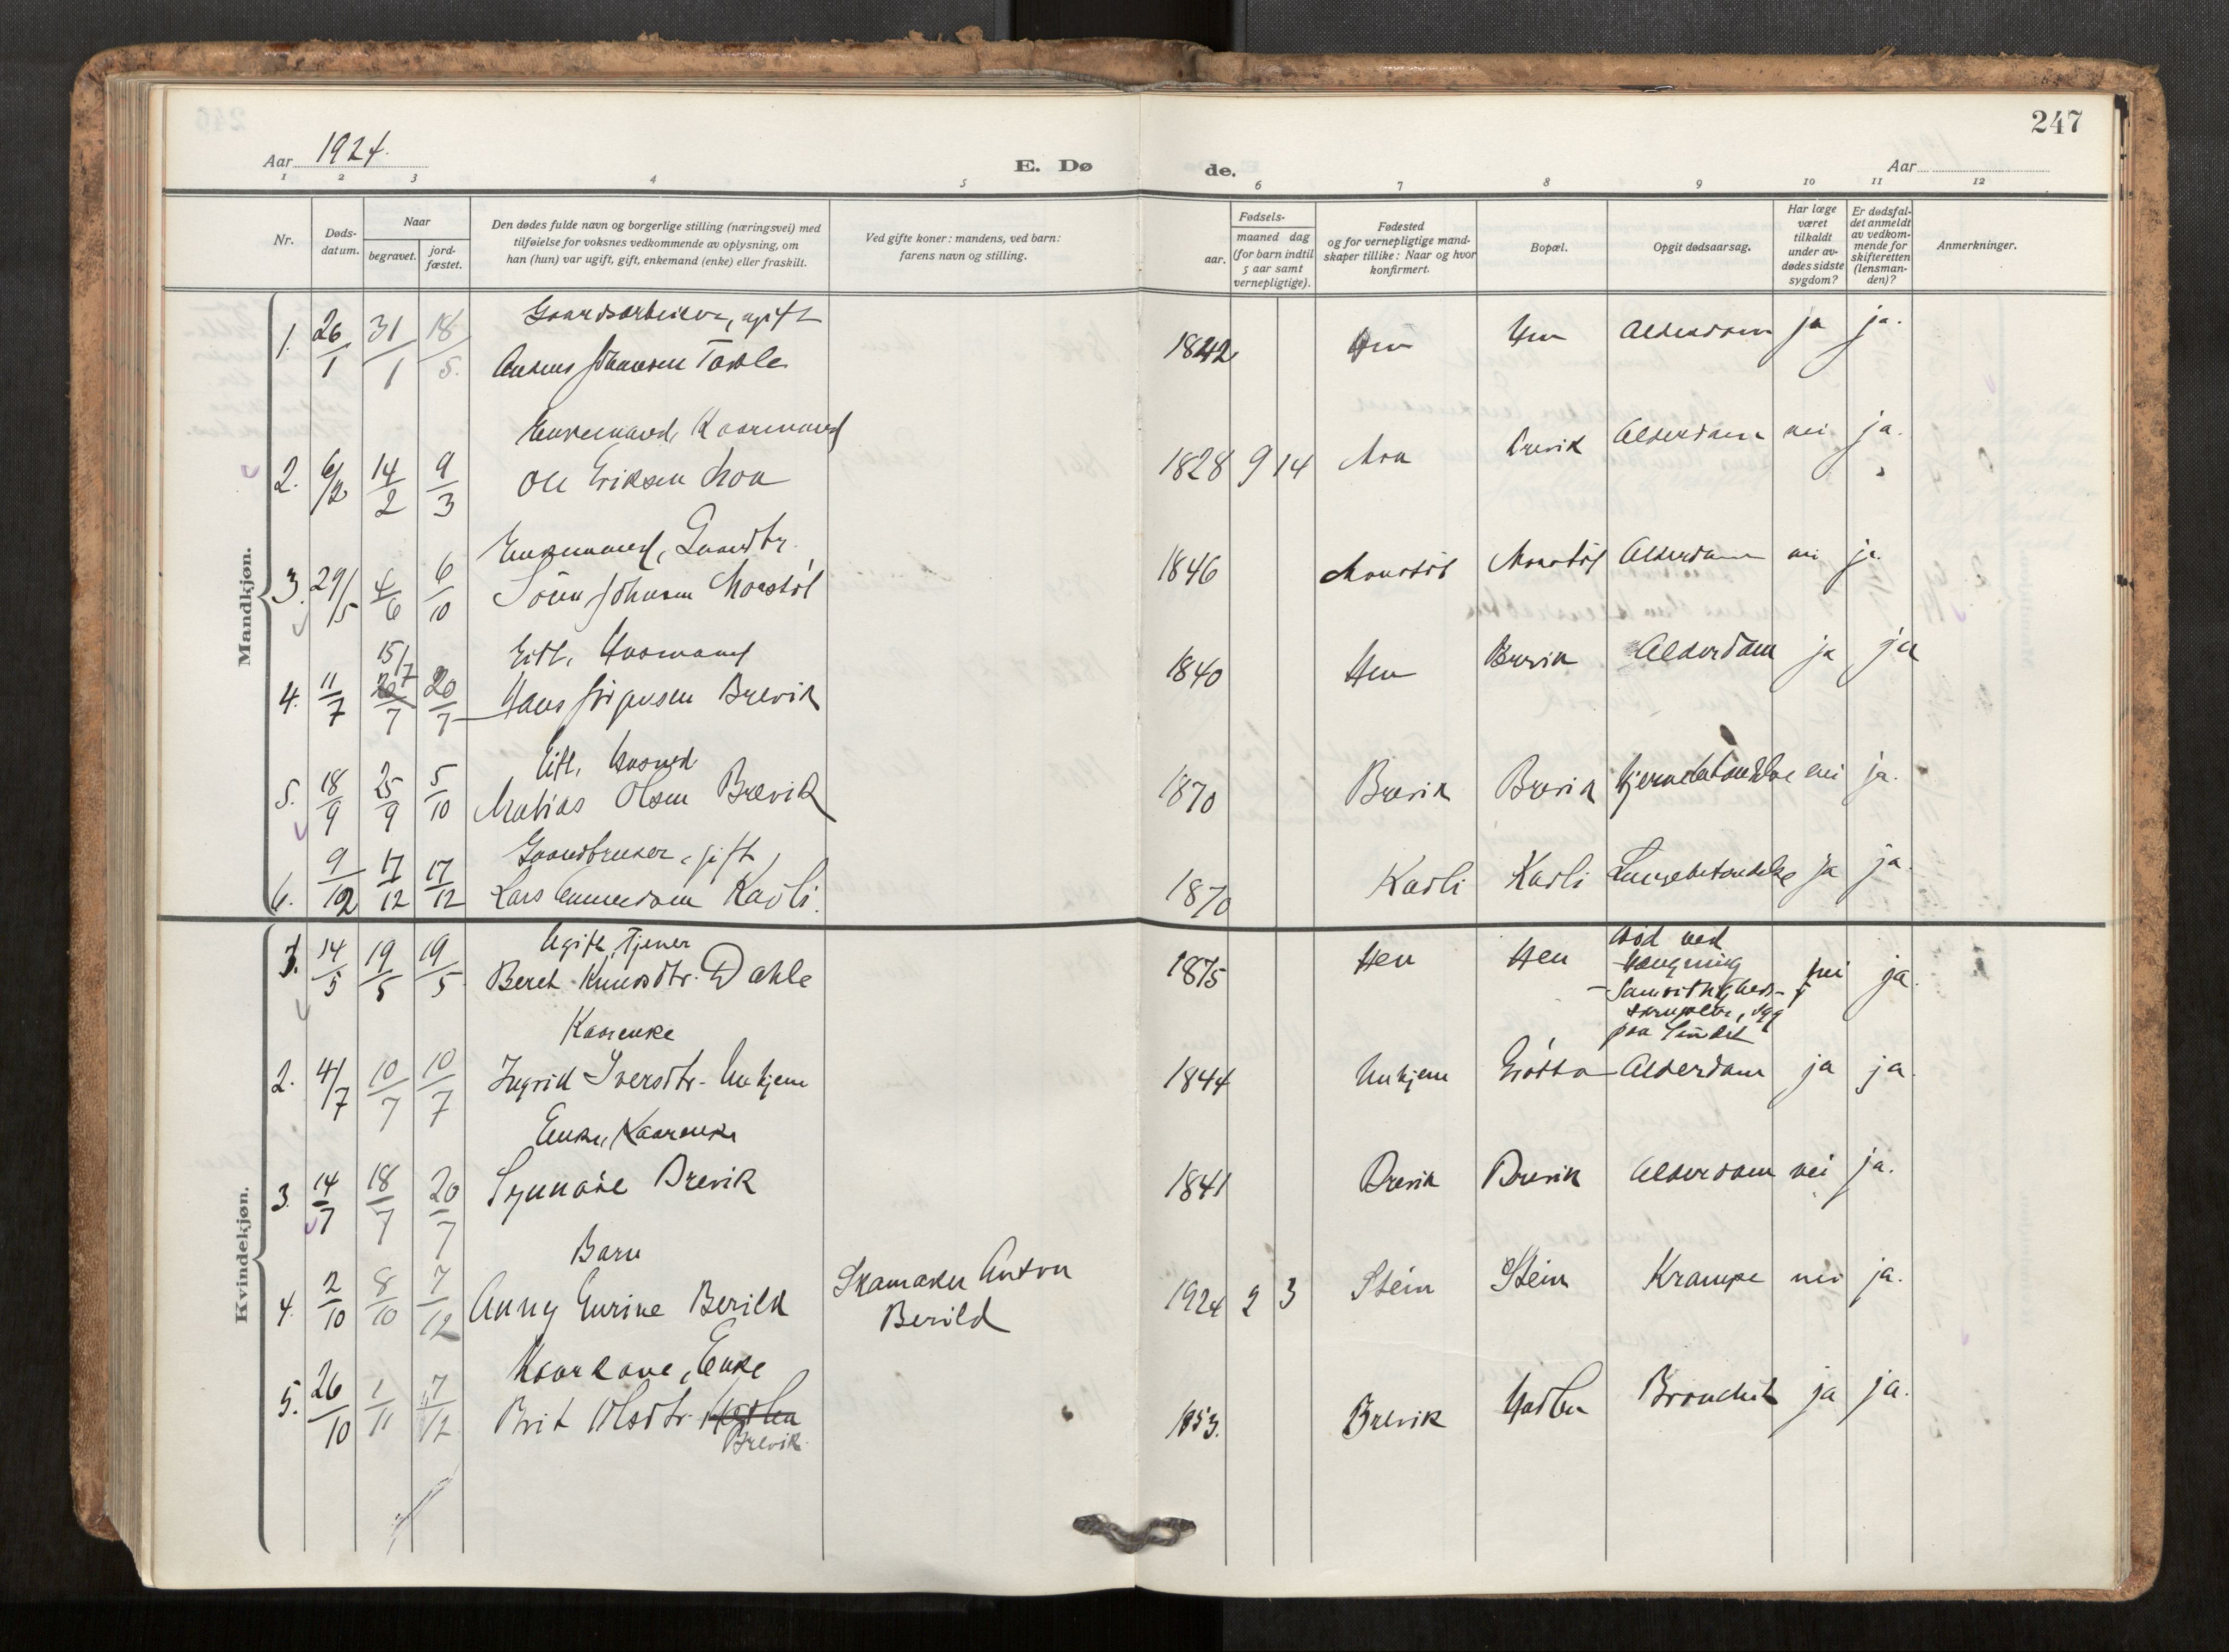 247
Aar 1924.
E. Dø de.
Aar
1 2 3 4 5 6 7 8 9 10 11 12
Nr.
Døds-
datum.
Naar
begravet.
jord-
fæstet.
Den dødes fulde navn og borgerlige stilling (næringsvei) med
tilføielse for voksnes vedkommende av oplysning, om
han (hun) var ugift, gift, enkemand (enke) eller fraskilt.
Ved gifte koner: mandens, ved barn:
farens navn og stilling.
Fødsels-
aar.
maaned dag
(for barn indtil
5 aar samt
vernepligtige).
Fødested
og for vernepligtige mand-
skaper tillike: Naar og hvor
konfirmert.
Bopæl.
Opgit dødsaarsag.
Har læge
været
tilkaldt
under av-
dødes sidste
sygdom?
Er dødsfal-
det anmeldt
av vedkom-
mende for
skifteretten
(lensman-
den)?
Anmerkninger.
Mandkjøn.
Gaardsarbeider, ugift
1. 26/1 31/1 18/5. 1842 Hen Hen Alderdom ja ja.
Enkemand, Kaarmand
2. 6/2 14/2 9/3 Ole Eriksen Moa 1828 9 14 Moa Brevik Alderdom nei ja.
Enkemand, Gaardbr.
3. 29/5 4/6 6/10 1846 Alderdom nei ja.
15/7
4. 11/7 20/7 20/7 Hans Jörgensen Brevik 1840 Hen Brevik Alderdom ja ja
5. 18/9 25/9 5/10 Matias Olsen Brevik 1870 Brevik Brevik nei ja.
Gaardbruker, gift
6. 9/12 17/12 17/12 Lars Kavli. 1870 Kavli Kavli Lungebetændelse ja ja.
Kvindekjøn.
Ugift, Tjener
1. 14/5 19/5 19/5 Beret Knudsdtr. Dahle 1875 Hen Hen Död ved
hængning
nei ja.
paa Sindet
Kaarenke
2. 4/7 10/7 10/7 Ingrid Iversdtr. Unhjem 1844 Unhjem Grötta Alderdom ja ja.
Enke, Kaarenke
3. 14/7 18/7 20/7 Synnøve Brevik 1841 Brevik Brevik Alderdom nei ja.
Barn
4. 2/10 8/10 7/12 Anny Enrine Berild Skomaker Anton
Berild
1924 2 3 Stein Stein Krampe nei ja.
Kaarkone, Enke
5. 26/10 1/11 7/12 Brit Olsdtr.
Brevik
1853. Brevik Bronchit ja ja.